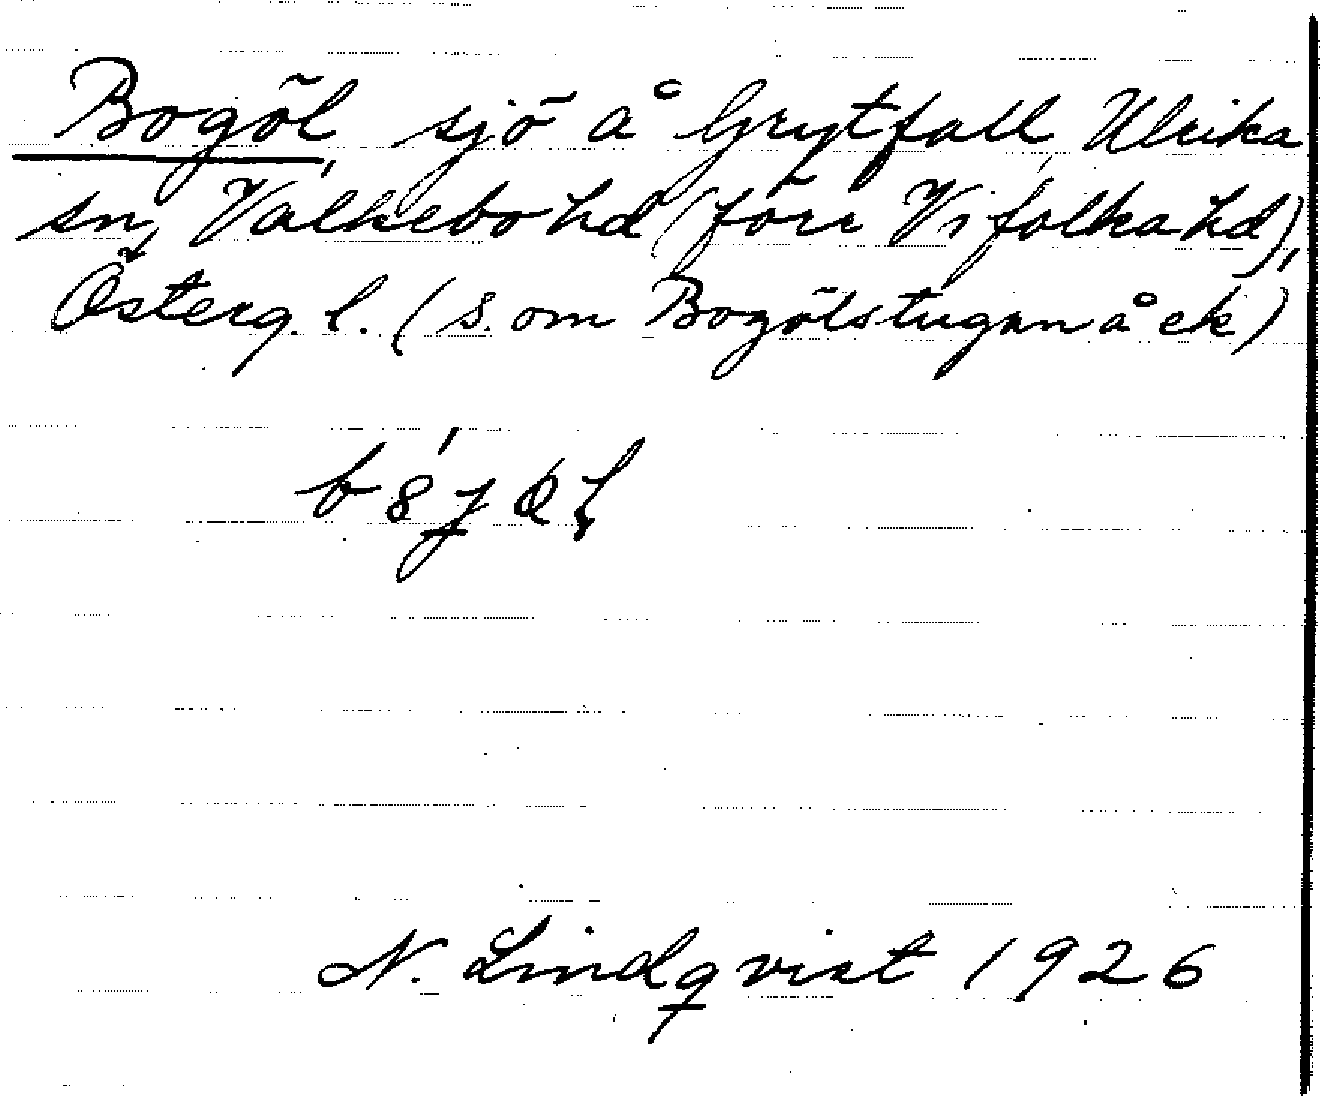 Bogöl, sjö å Grytfall, Ulrika
sn, Valkebo hd (förr Vifolka hd),
Österg. l. (s. om Bogölstugan å ek)
N. Lindqvist 1926